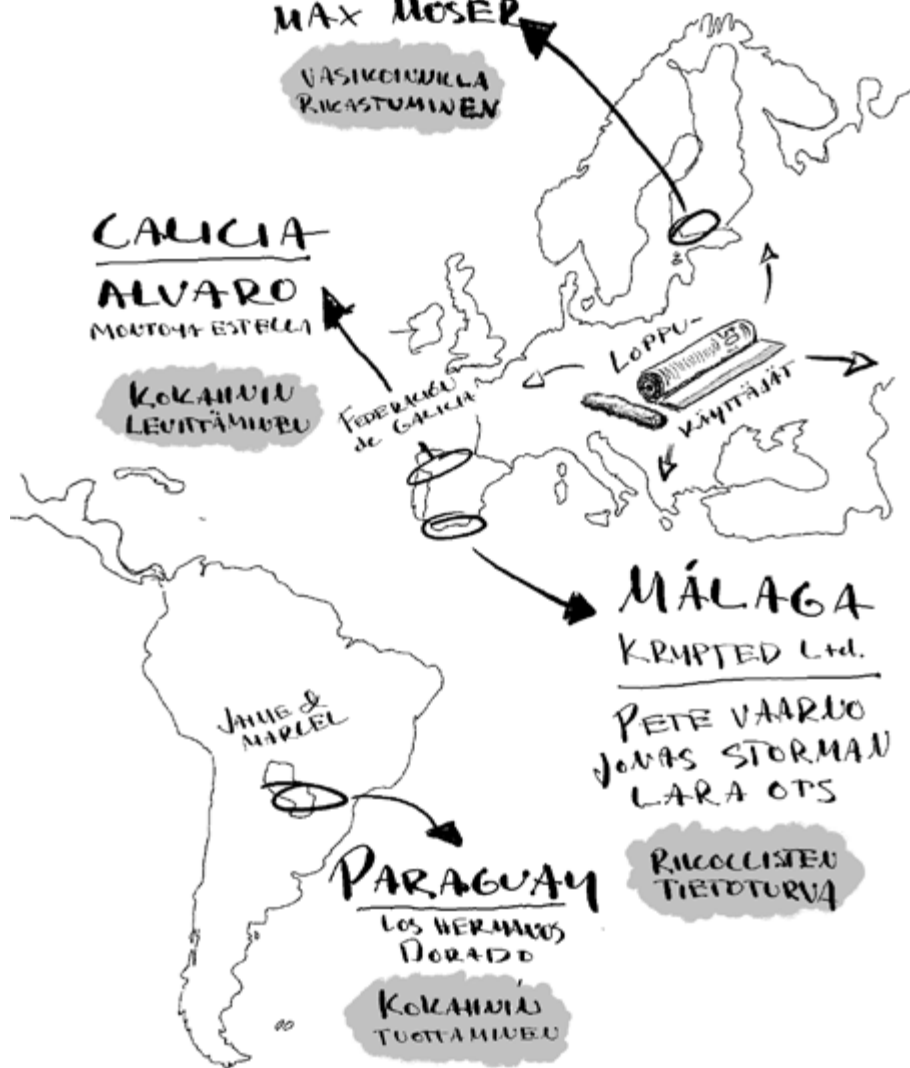 MAX MOSER
VASIKOINNILLA
RIKASTUMINEN
GALICIA
ALVARO
MONTOYA ESTELLA
KOKAIININ
LEVITTÄMINEN
FEDERACIÓN
de GALICIA
LOPPU-
KÄYTTÄJÄT
MÁLAGA
KRYPTED Ltd.
PETE VAARNO
JONAS STORMAN
LARA OTS
RIKOLLISTEN
TIETOTURVA
JAIME &
MARCEL
PARAGUAY
LOS HERMANOS
DORADO
KOKAIININ
TUOTTAMINEN